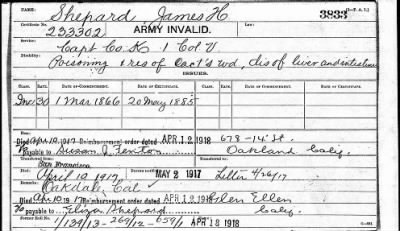 NAME: Shepard, James H 3833
Certificate No. 233302 ARMY INVALID.
Capt Co. K 1 Col V
Disability: Poisoning & res of lact'd wd, dis of liver and intestines
ISSUES.
CLASS. RATE. DATE OF COMMENCEMENT. DATE OF CERTIFICATE. CLASS. RATE. DATE OF COMMENCEMENT. DATE OF CERTIFICATE.
Inv 30 1 Mar 1866 20 May 1885
Died Apr 10, 1917 Reimbursement order dated APR 12 1918 678-14" St.
payable to Susan J. Fenton Oakland Calif.
San Francisco
April 10, 1917 MAY 2 1917 Letter 4/26/17
Oakdale, Cal
Died Apr. 10, 1917 Reimbursement order dated APR 12 1918 Glen Ellen
payable to Eliza Shepard Calif.
APR 18 1918